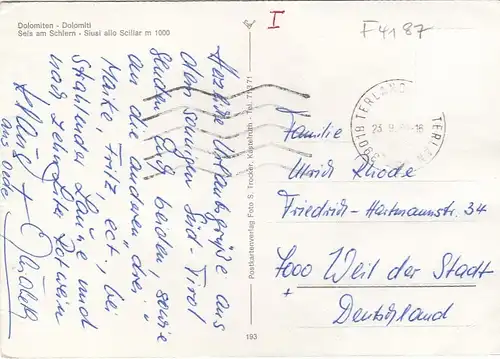 Dolomiten - Dolomiti
Seis am Schlern - Siusi allo Sciliar m 1000
I
F4187
Herzliche Urlaubsgrüße aus
dem sonnigen Süd-Tirol
senden Euch beiden, sowie
an die anderen "drei"
Maike, Fritz, ect., bei
Strahlender Laune und
nach zehn Liter Rotwein
Klaus +
aus oede
Postkartenverlag Foto S. Trocker, Kastelruth - Tel. 71
193
39018 TERLANO
TERLAN
23. 9.
16
Familie
Ulrich Rhode
Friedrich-Hartmannstr. 34
7000 Weil der Stadt
+
Deutschland